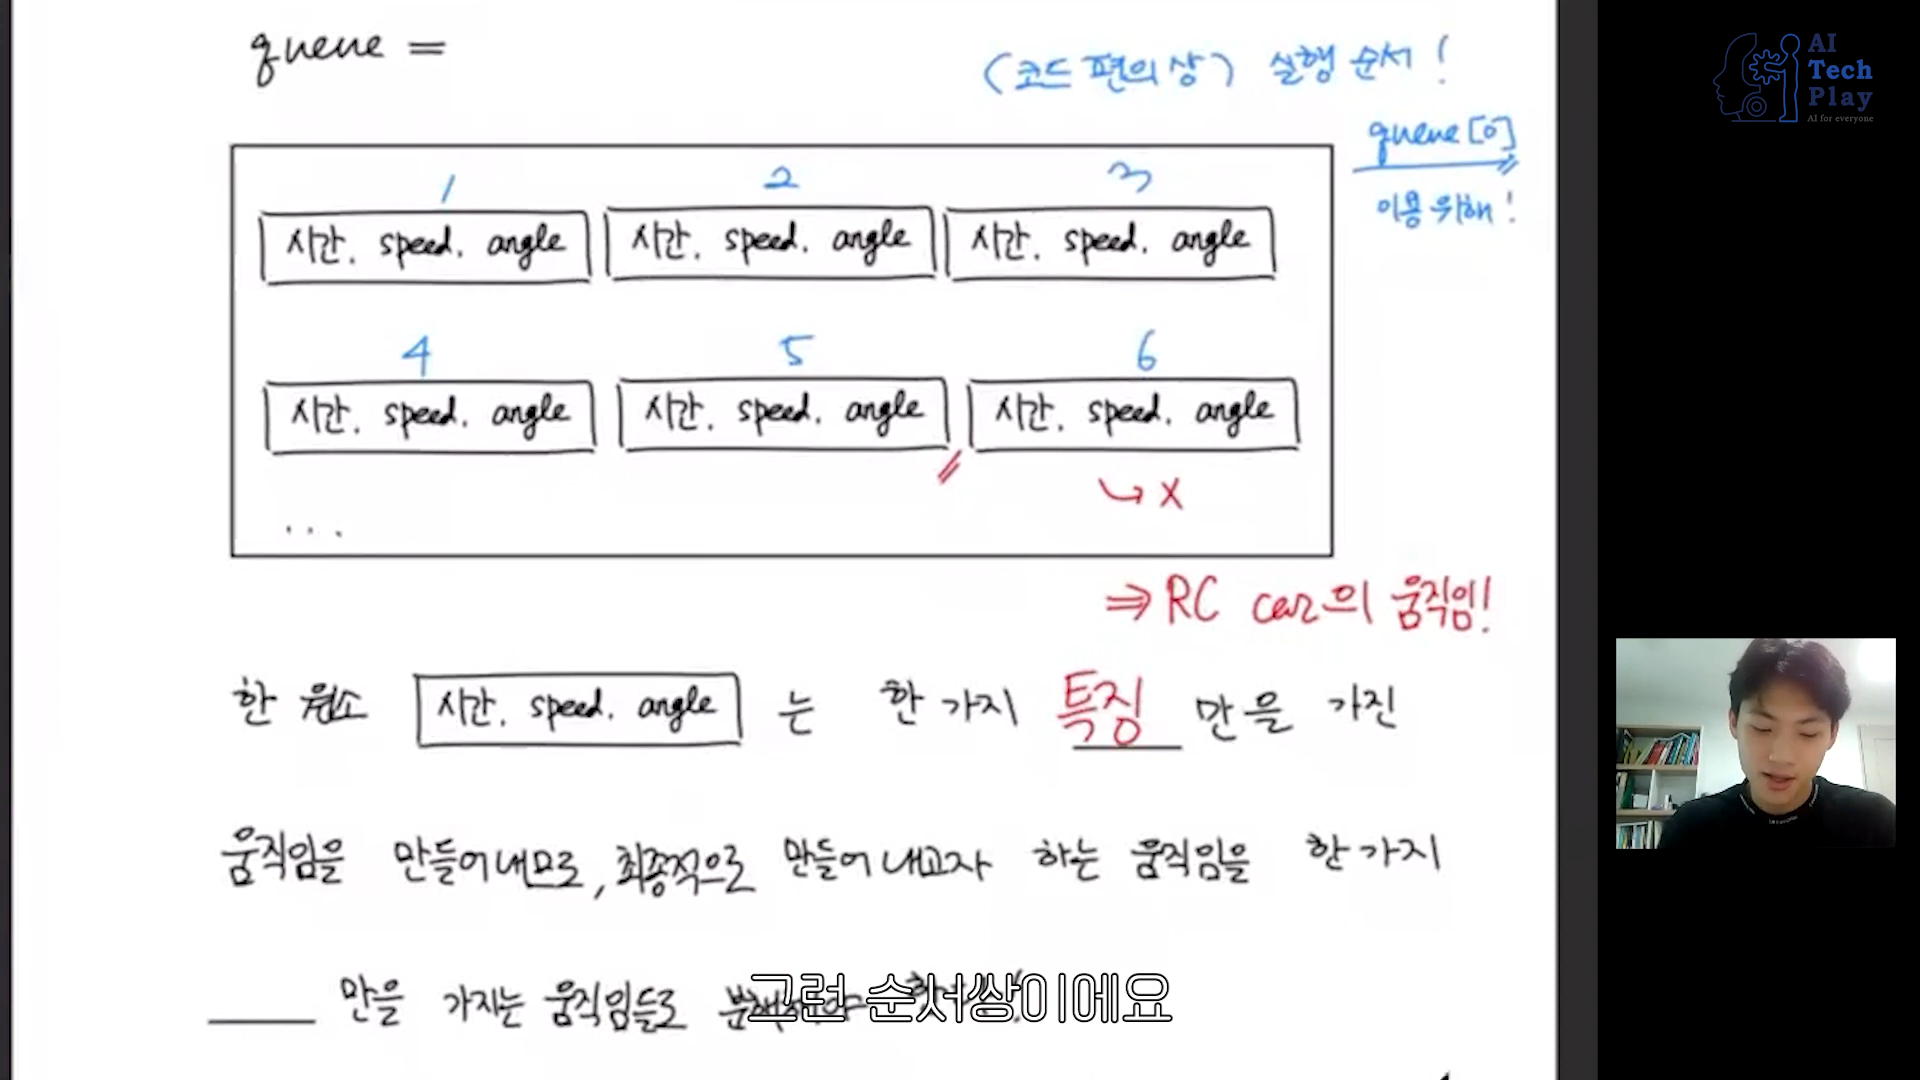 queue =
(코드 편의상) 실행 순서!
queue[0]
이용 위해!
1 2 3
시간, speed, angle 시간, speed, angle 시간, speed, angle
4 5 6
시간, speed, angle 시간, speed, angle 시간, speed, angle
↳ X
...
⇒ RC car의 움직임!
한 원소 시간, speed, angle 는 한 가지 특징 만을 가진
움직임을 만들어내므로, 최종적으로 만들어 내고자 하는 움직임을 한 가지
____ 만을 가지는 움직임들로
그런 순서쌍이에요
AI
Tech
Play
AI for everyone